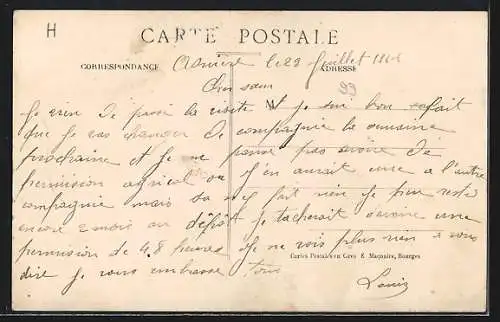 H
CARTE POSTALE
CORRESPONDANCE
ADRESSE
le 23 Juillet
93
Cher sœur
Je vien de passé la visite et je sui bon
que je vas changer de compagnie la semaine
prochaine et je ne pense pas avoir de
permission agricol j'en aurait une a l'autre
compagnie mais sa ne fait rien je peu resté
encore 2 mois au dépôt je tacherait d'avoir une
permission de 48 heures Je ne vois plus rien a vous
dire je vous embrasse tous
Cartes Postales en Gros E. Maquaire, Bourges
Louis